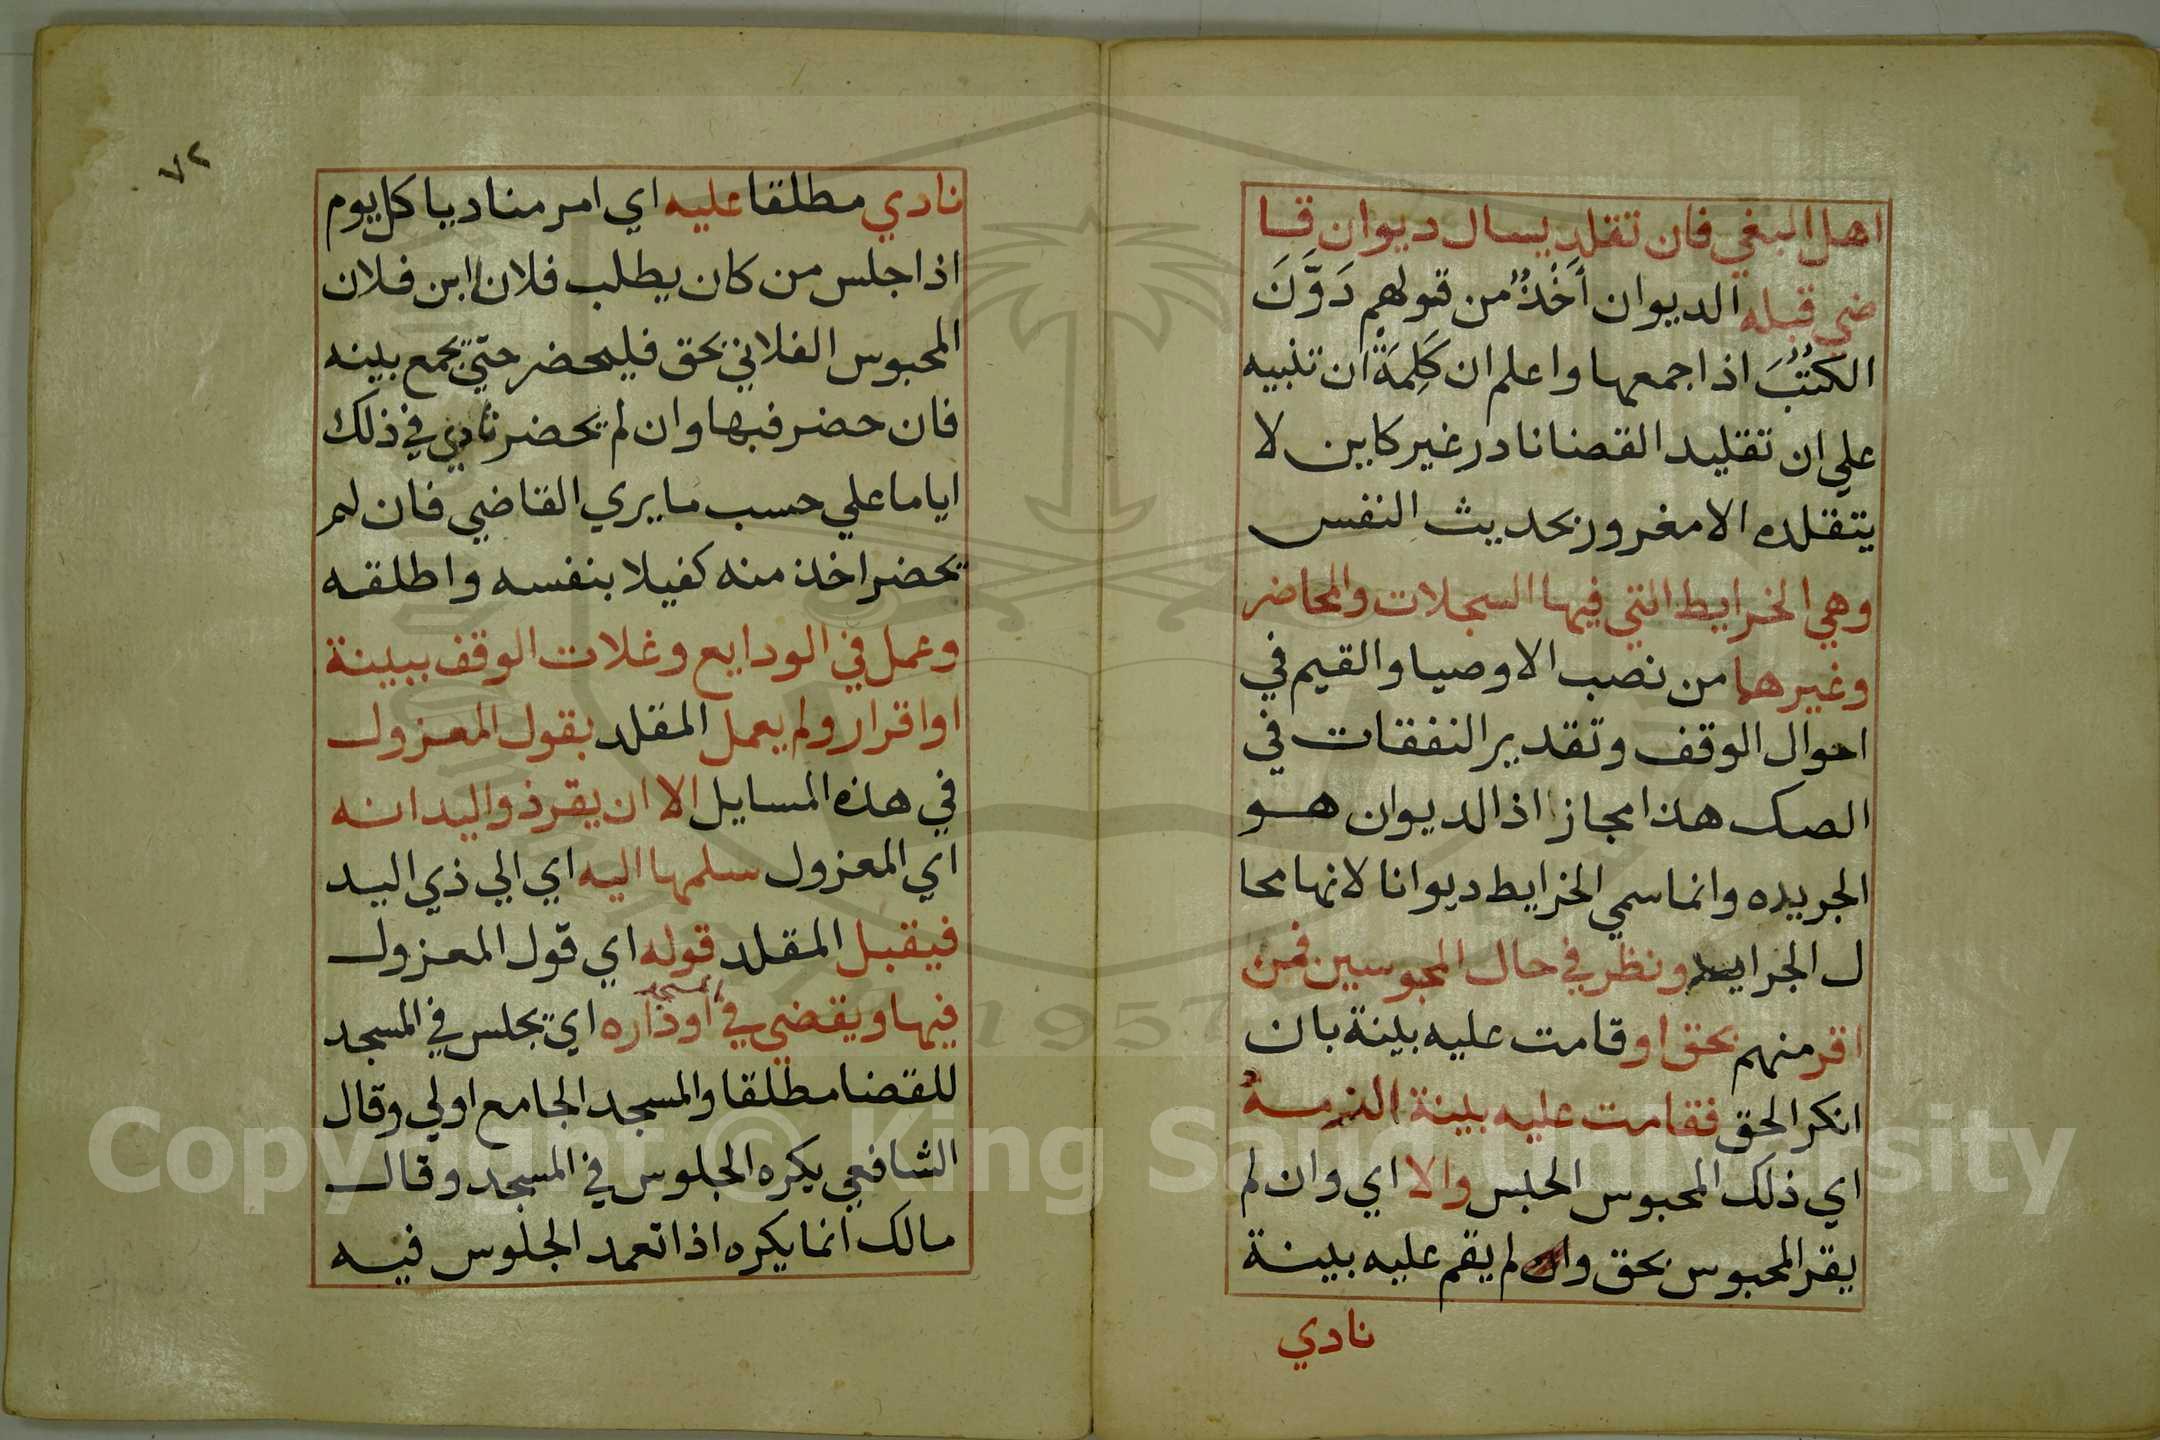 اهل البغي فان تقلد يسال ديوان قا
ضي قبله الديوان أَخْذُ من قولهم دَوَّنَ
الكُتُبَ اذا جمعها واعلم ان كَلِمَةَ ان تنبيه
علي ان تقليد القضا نادر غير كاين لا
يتقلده الا مغرور بحديث النفس
وهي الخرايط التي فيها السجلات والمحاضر
وغيرهما من نصب الاوصيا والقيم في
احوال الوقف وتقدير النفقات في
الصك هذا مجاز اذ الديوان هو
الجريده وانما سمي الخرايط ديوانا لانها محا
ل الجرايد ونظر في حال المحبوسين فمن
اقر منهم بحق او قامت عليه بينة بان
انكر الحق فقامت عليه بينة الزمه
اي ذلك المحبوس الحبس والا اي وان لم
يقر المحبوس بحق وان لم يقم عليه بينة
نادي
٧٢
نادي مطلقا عليه اي امر مناديا كل يوم
اذا جلس من كان يطلب فلان ابن فلان
المحبوس الفلاني بحق فليحضر حتي يجمع بينه
فان حضر فبها وان لم يحضر نادي في ذلك
اياما علي حسب ما يري القاضي فان لم
يحضر اخذ منه كفيلا بنفسه واطلقه
وعمل في الودايع وغلات الوقف ببينة
او اقرار ولم يعمل المقلد بقول المعزول
في هذه المسايل الا ان يقر ذو اليد انه
اي المعزول سلمها اليه اي الي ذي اليد
فيقبل المقلد قوله اي قول المعزول
فيها ويقضي في المسجد او داره اي يجلس في المسجد
للقضا مطلقا والمسجد الجامع اولي وقال
الشافعي يكره الجلوس في المسجد وقال
مالك انما يكره اذا تعمد الجلوس فيه
1957
Copyright © King Saud University